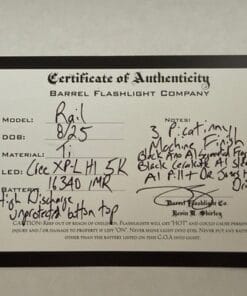 Certificate of Authenticity
BARREL FLASHLIGHT COMPANY
MODEL: Rail
DOB: 8/25
MATERIAL: Ti
LED: Cree XP-L HI 5K
BATTERY: 16340 IMR
High Discharge
unprotected button top
NOTES:
3 Picatinny
Machine Finish
Black Ano Al
Black Cerakote Al
Al Pill +
Barrel Flashlight Co.
Kevin R. Shirley
CAUTION: KEEP OUT OF REACH OF CHILDREN. FLASHLIGHT WILL GET "HOT" AND COULD CAUSE PERSONAL
INJURY AND / OR DAMAGE TO PROPERTY IF LEFT "ON". NEVER SHINE LIGHT INTO EYES. NOT TO USE ANY
OTHER THAN THE BATTERY LISTED ON THIS C.O.A INTO LIGHT.